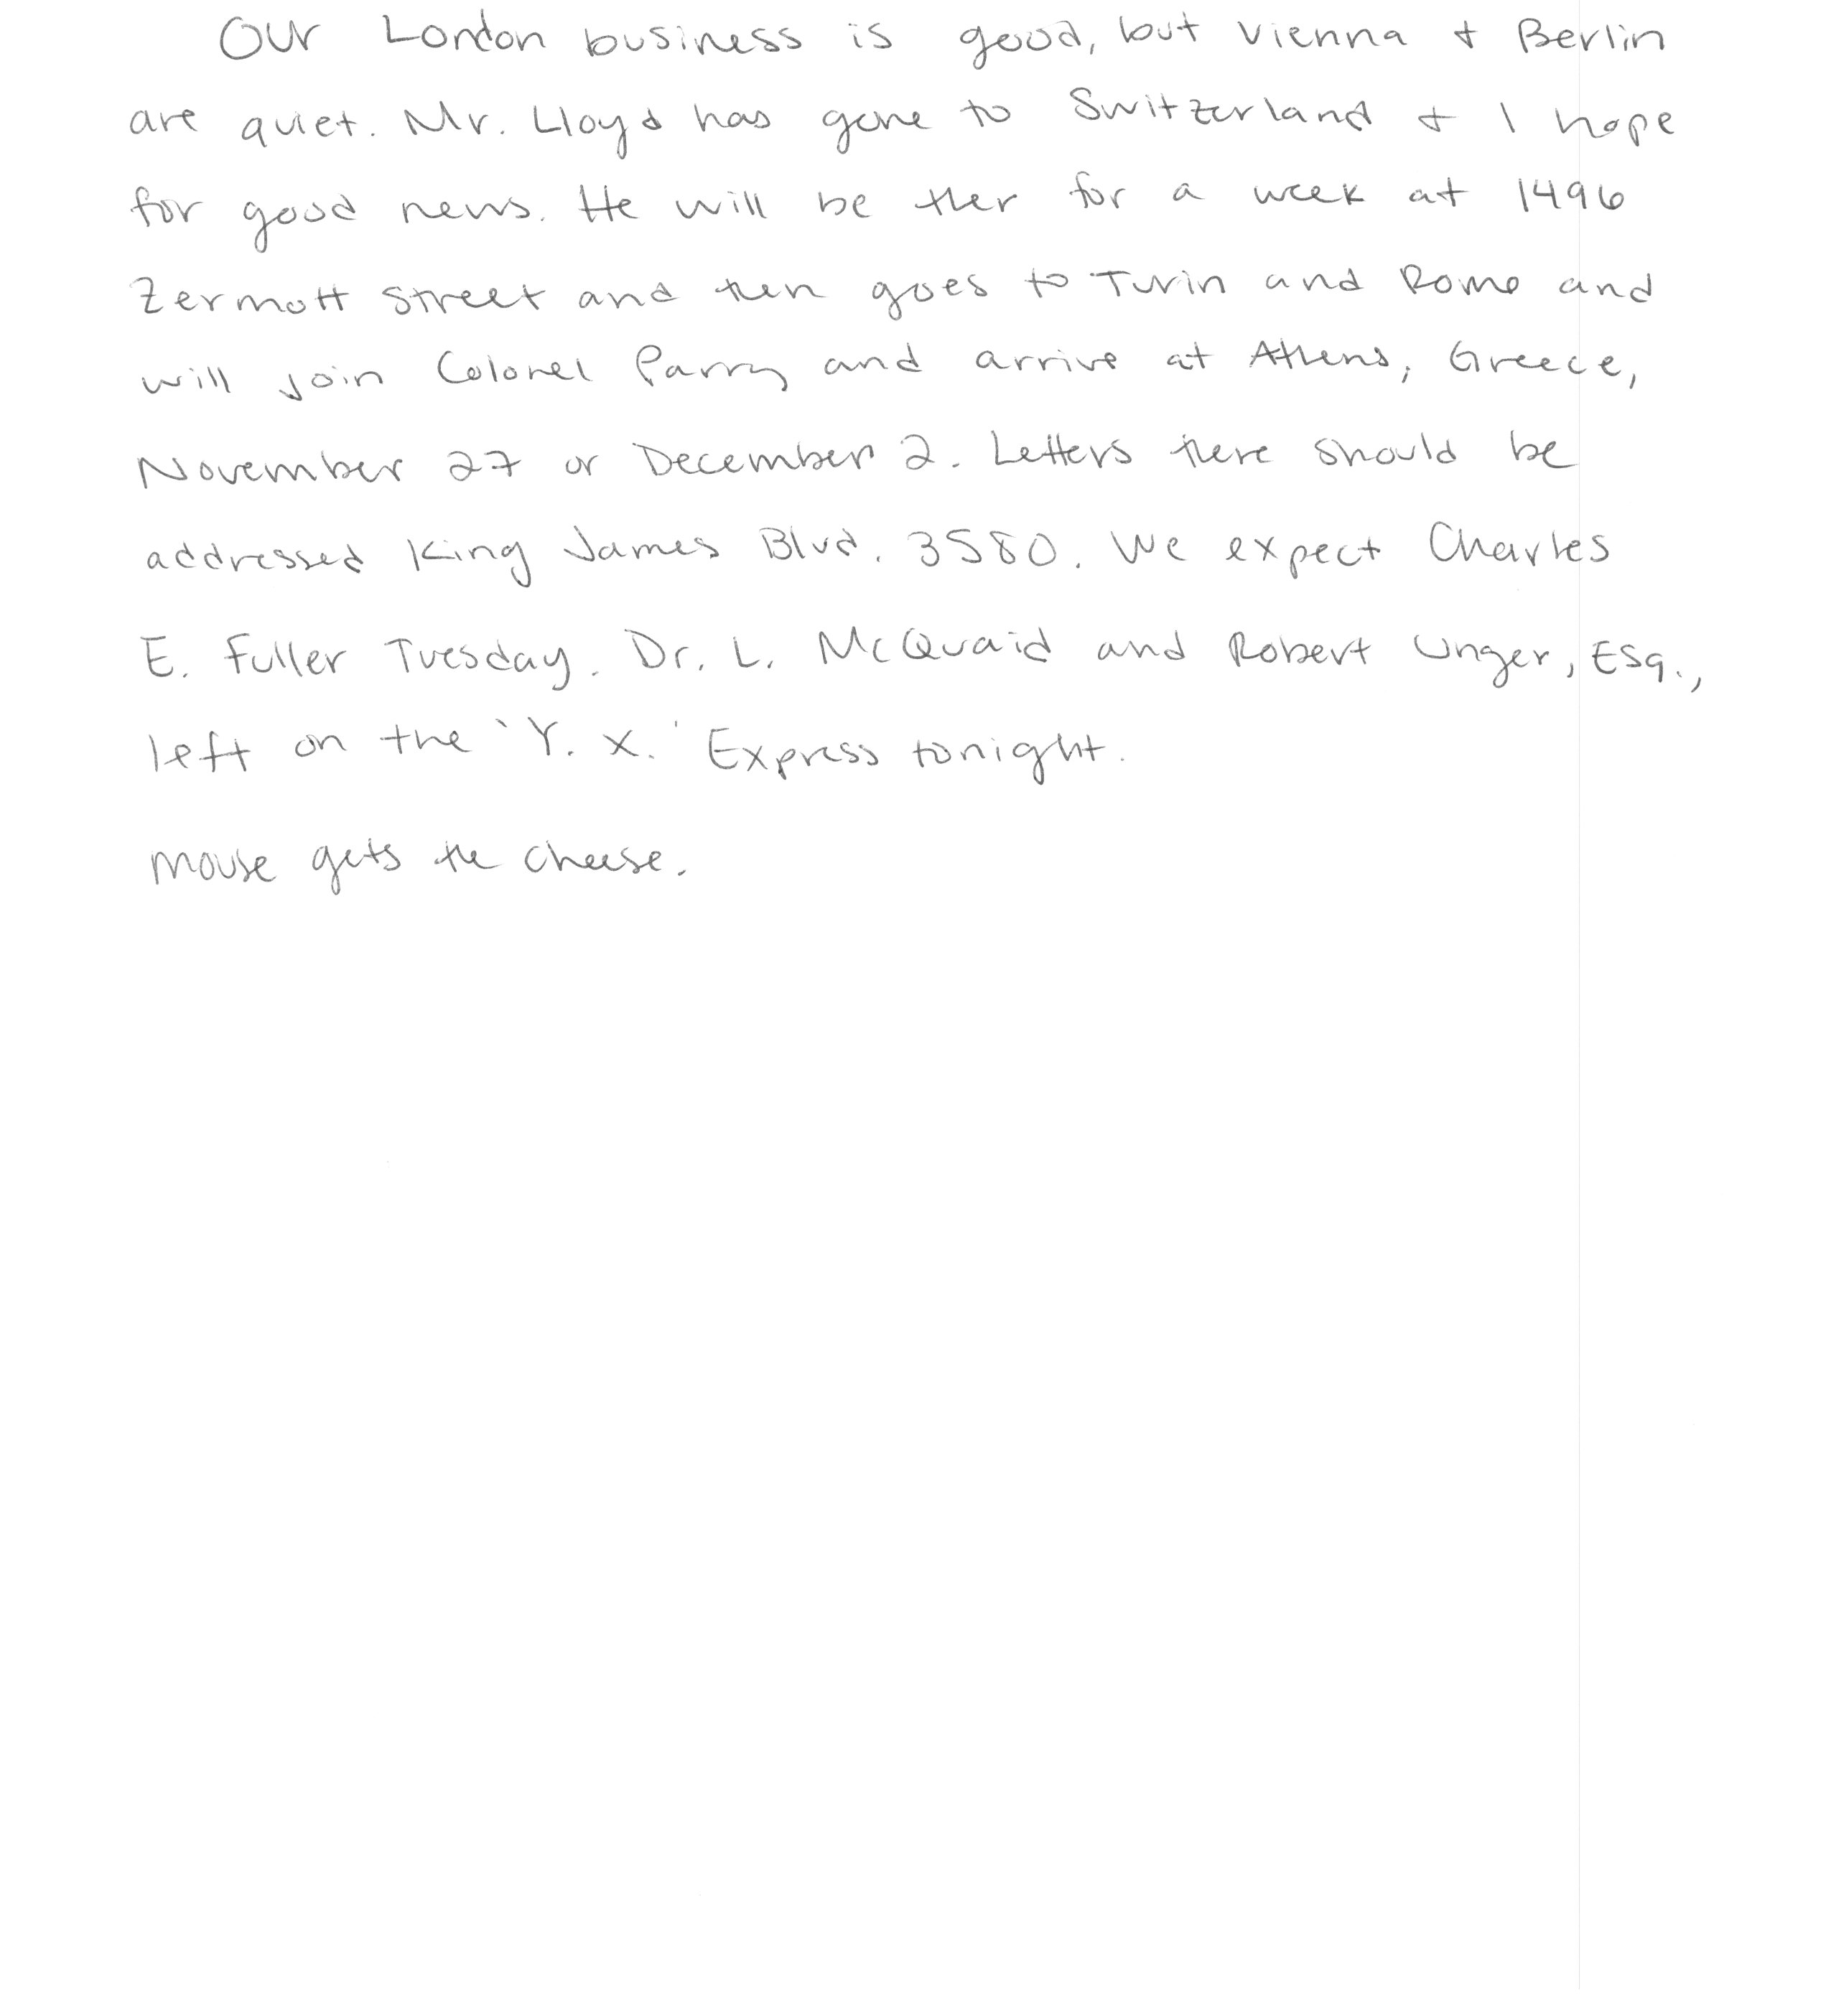 Our London business is good, but Vienna + Berlin
are quiet. Mr. Lloyd has gone to Switzerland + I hope
for good news. He will be ther for a week at 1496
Zermott Street and then goes to Turin and Rome and
will join Colonel Parry and arrive at Athens, Greece,
November 27 or December 2. Letters there should be
addressed King James Blvd. 3580. We expect Charles
E. Fuller Tuesday. Dr. L. McQuaid and Robert Unger, Esq.,
left on the 'Y. X.' Express tonight.
mouse gets the cheese.